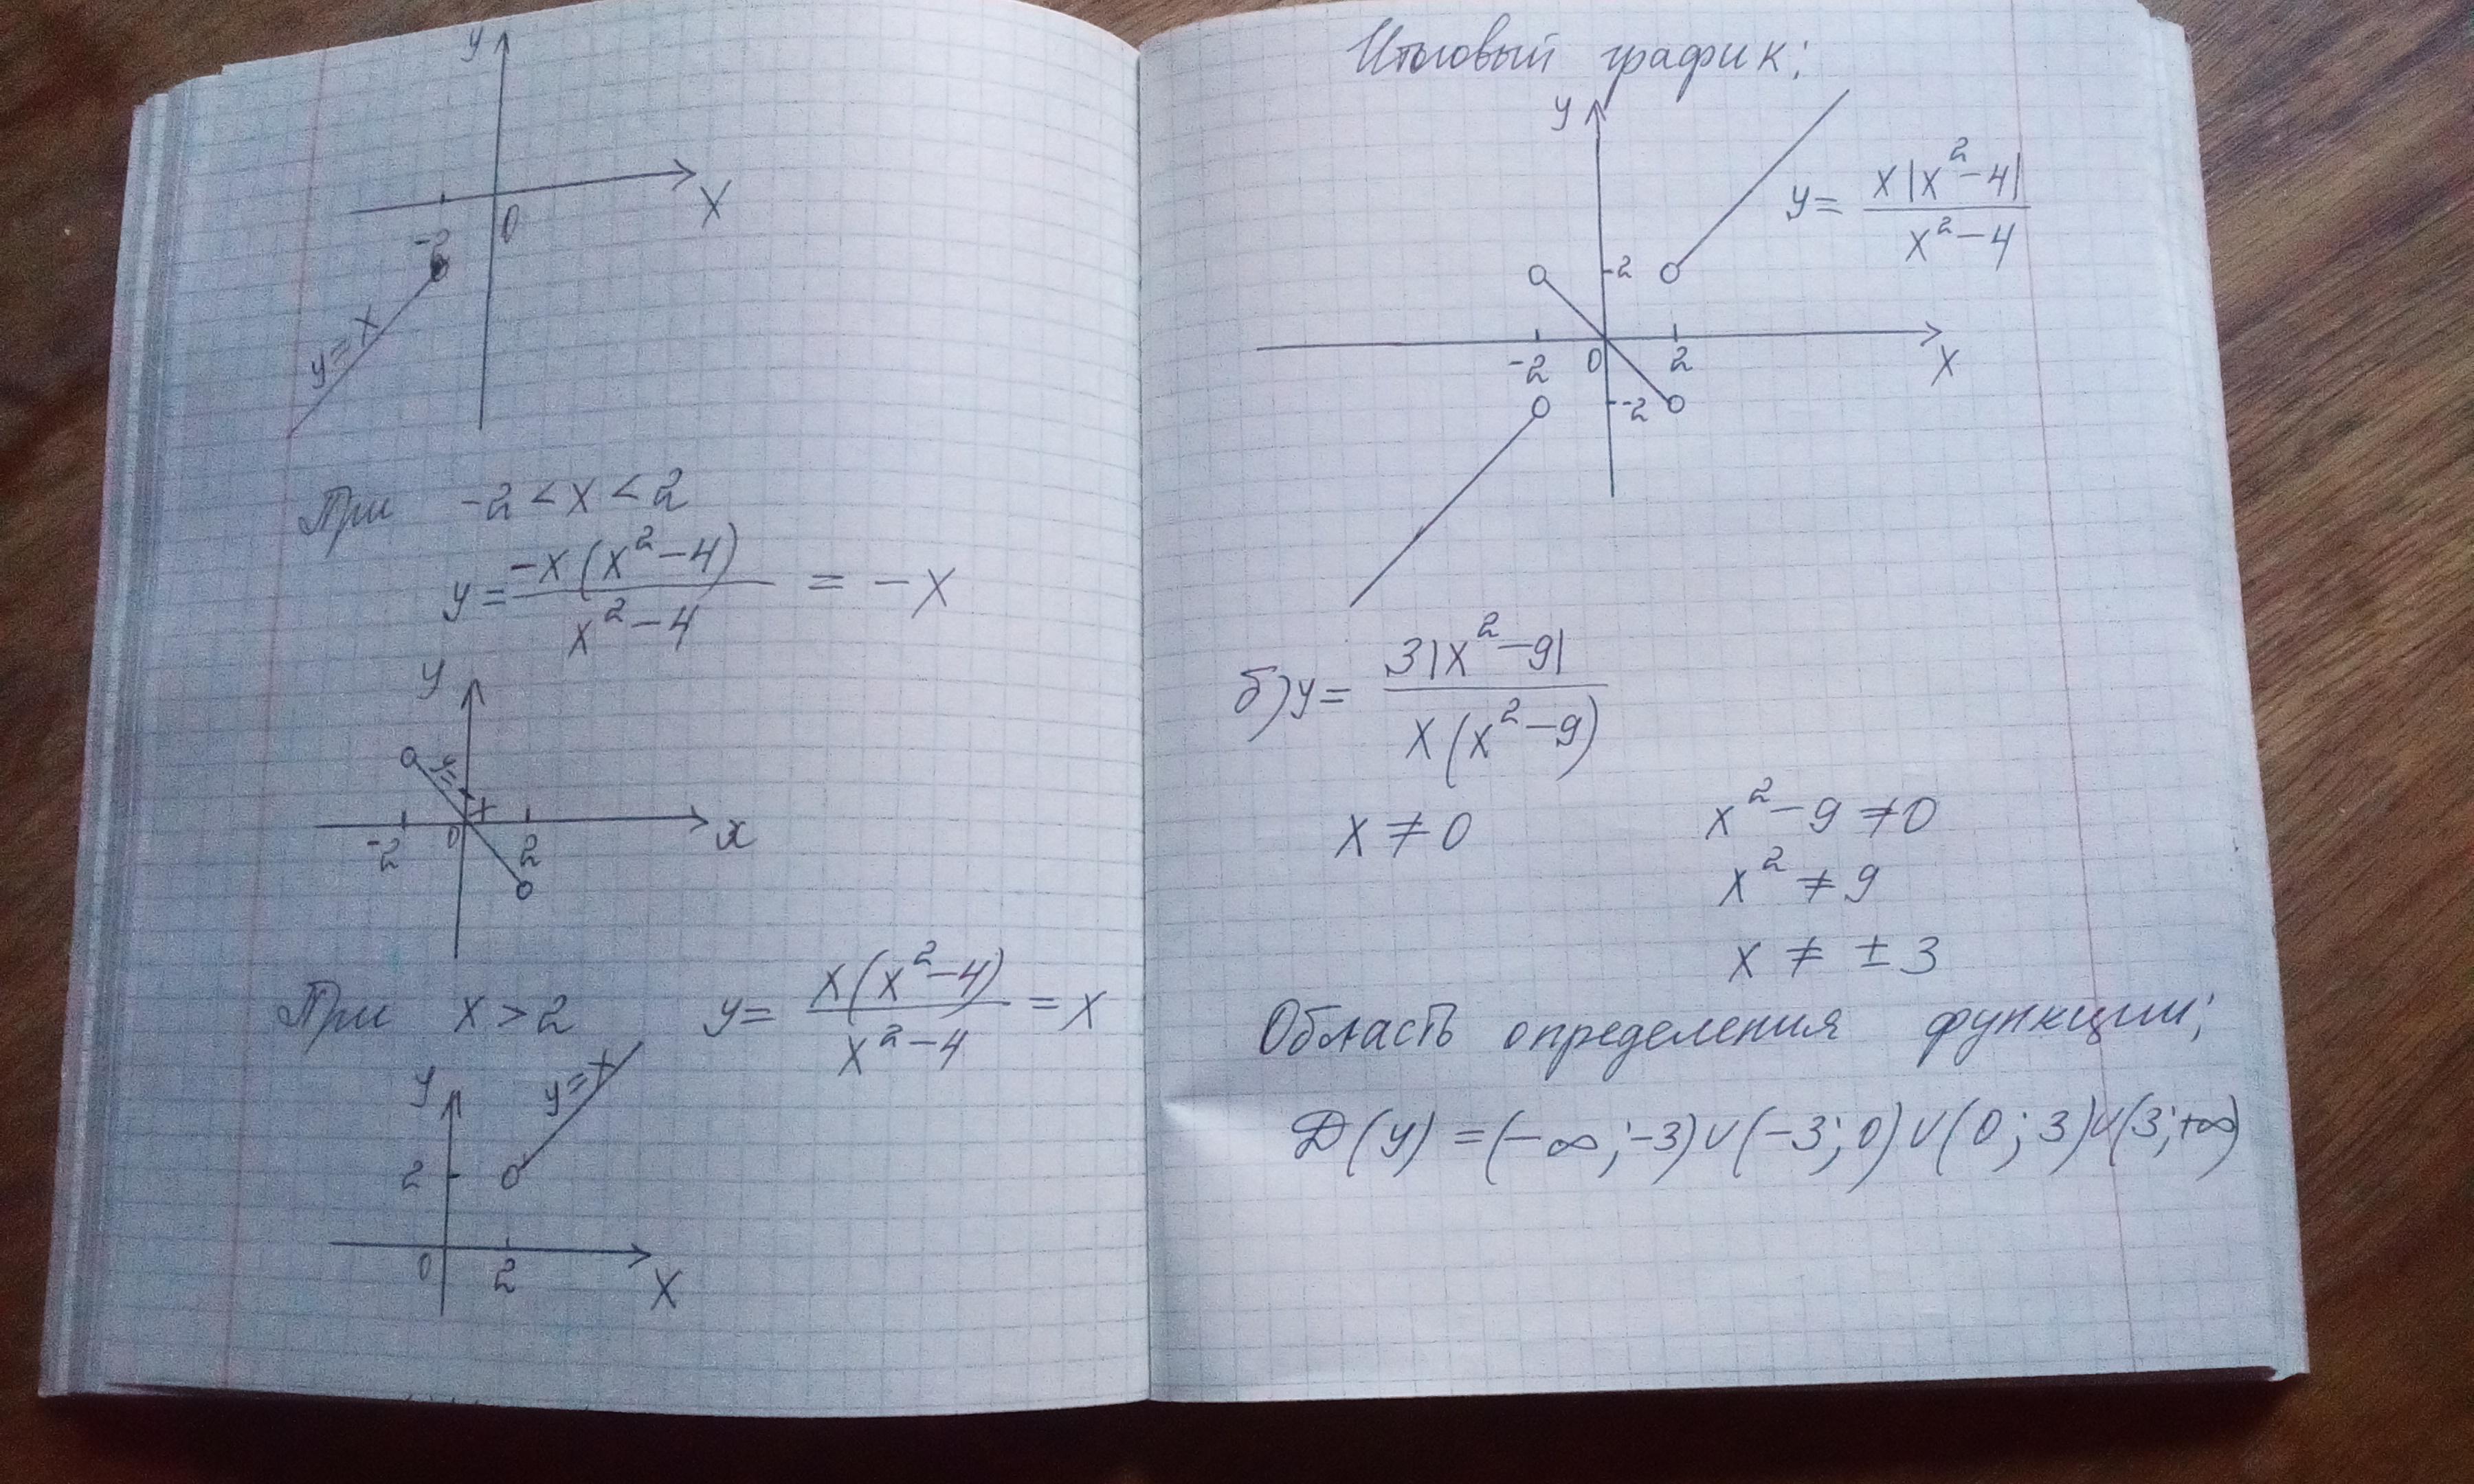 y
x
-2 0
y = x
При -2 < x < 2
y = -x(x² - 4) / x² - 4 = -x
y
y = -x
-2 0 2 x
При x > 2 y = x(x² - 4) / x² - 4 = x
y
y = x
2
0 2 x
Итоговый график:
y
y = x|x² - 4| / x² - 4
2
-2 0 2 x
-2
б) y = 3|x² - 9| / x(x² - 9)
x ≠ 0 x² - 9 ≠ 0
x² ≠ 9
x ≠ ± 3
Область определения функции:
D(y) = (-∞; -3) ∪ (-3; 0) ∪ (0; 3) ∪ (3; +∞)